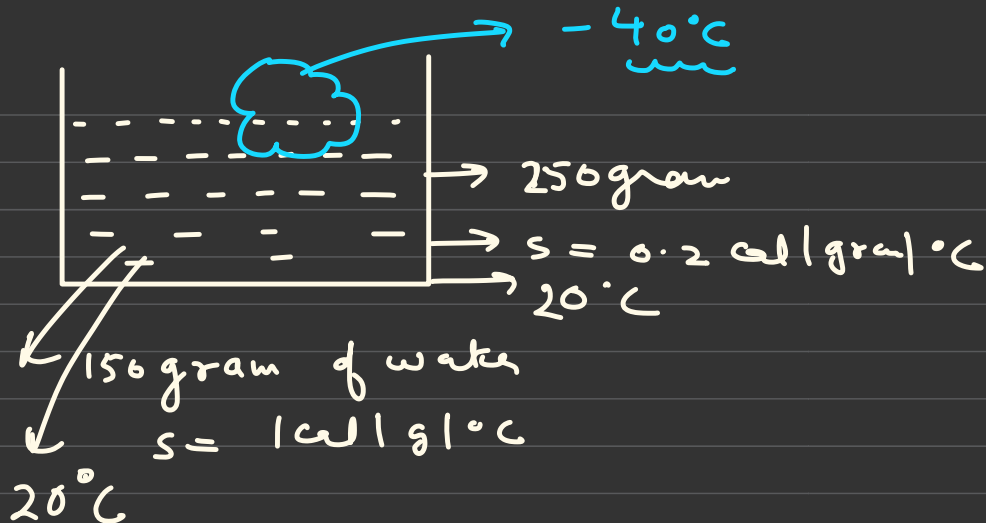 -40°C
250 gram
s = 0.2 cal/gram/°C
20°C
150 gram of water
s = 1 cal/g/°C
20°C